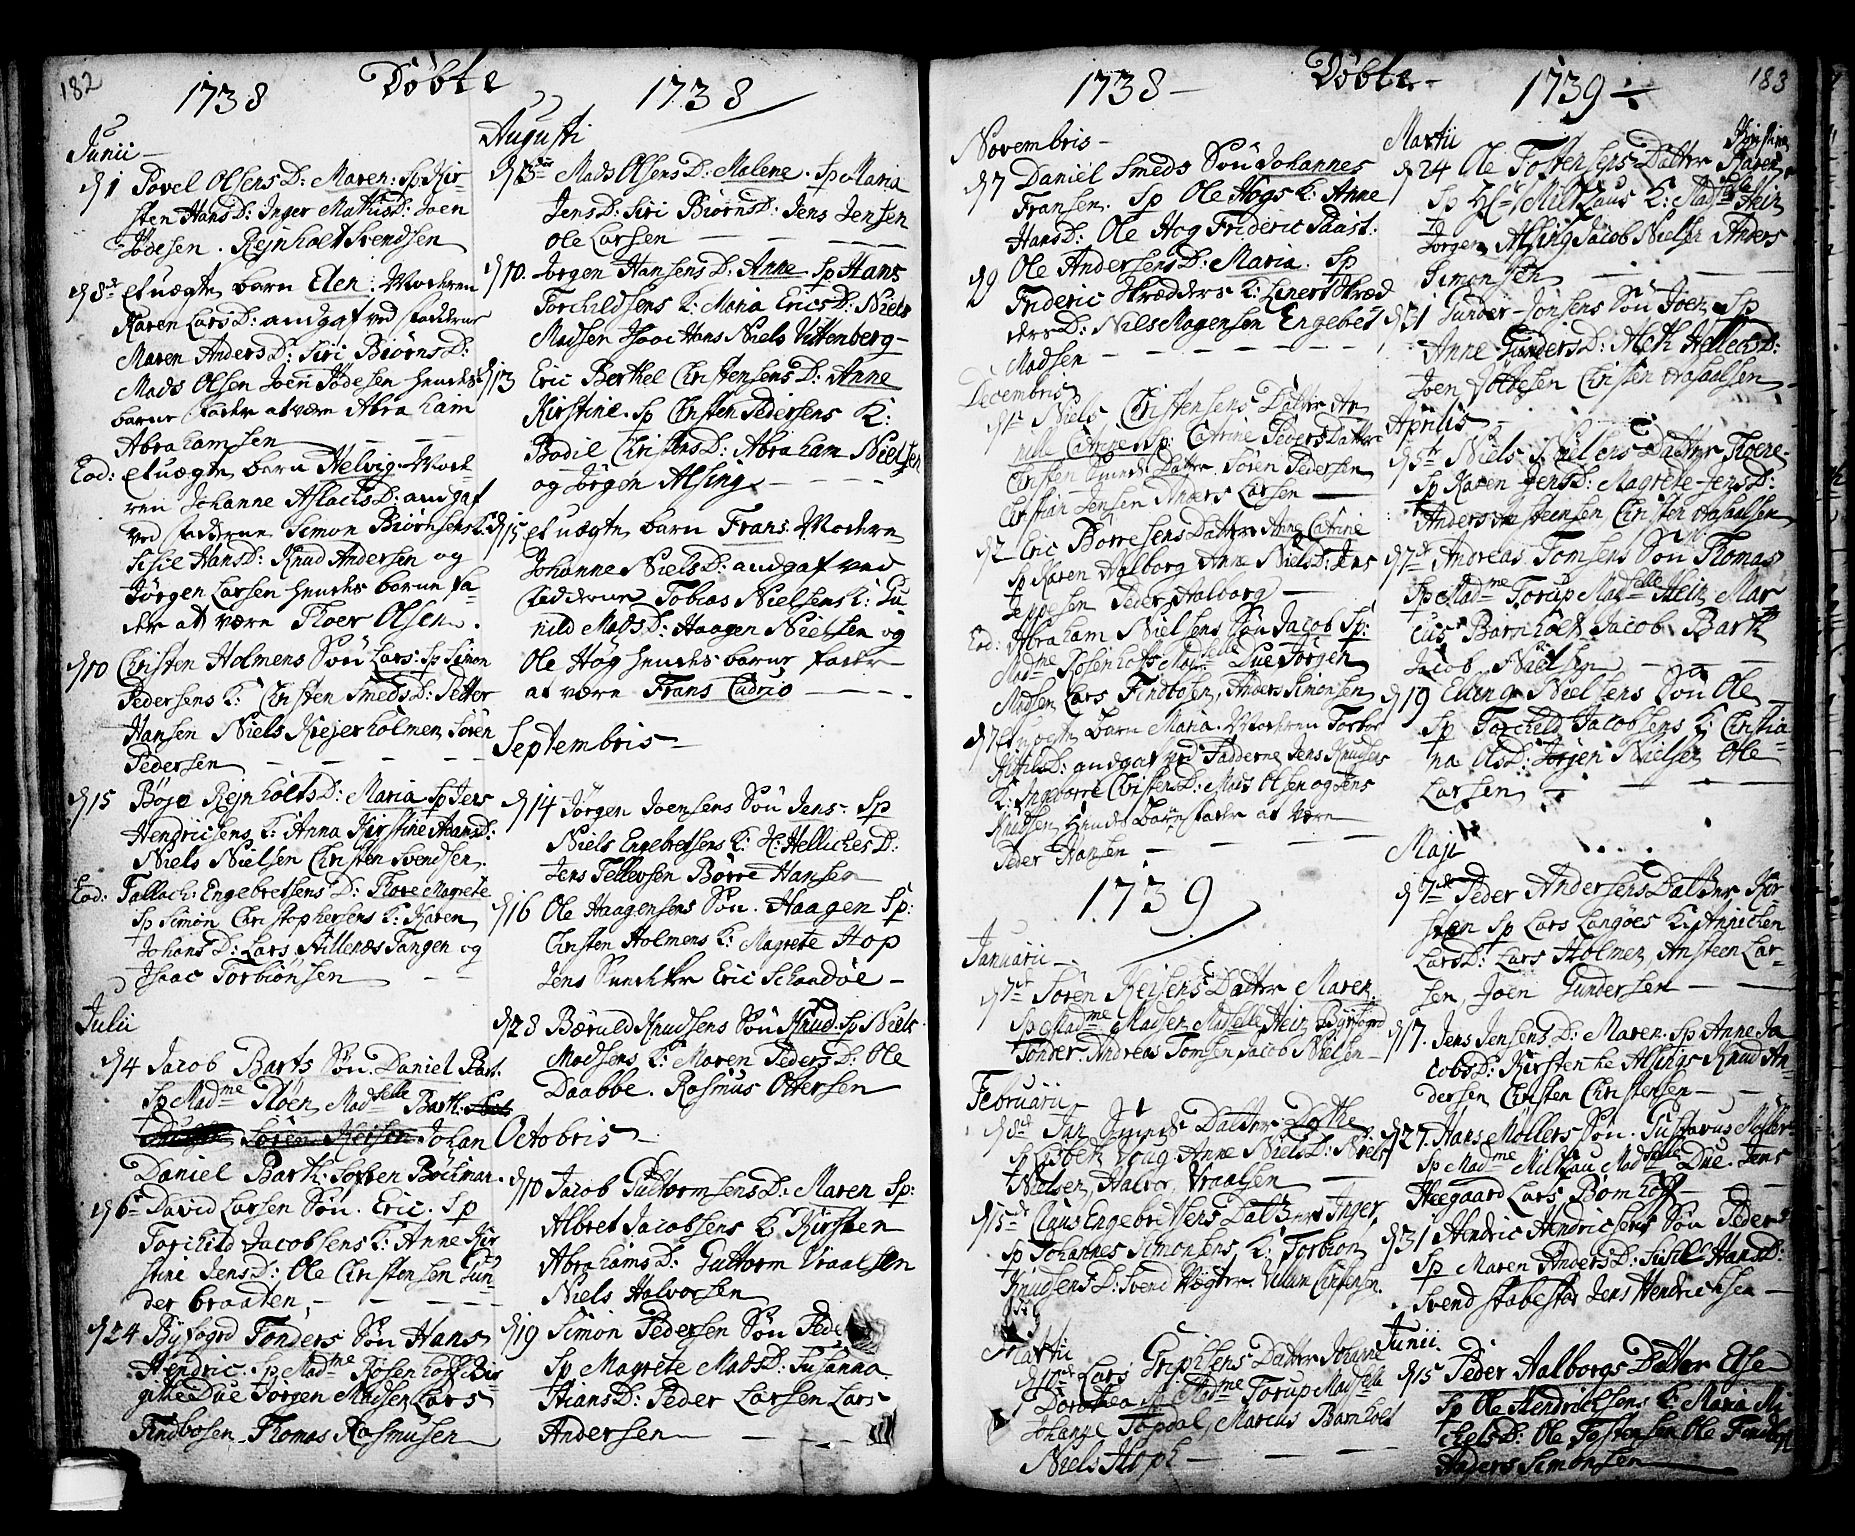 182
Döbte
1738
1738
Junii
d 1 Povel Olsens D: Maren: Sp Kir-
sten Hans D: Inger Matius D: Joen
Jodesen. Rejnholt Svendsen
d 8de et uægte barn Elen: Moderen
Karen Lars D: andgaf ved fadderne
Maren Anders D: Siri Biørns D:
Mads Olsen Joen Jodesen hendes
barne fader at være Abraham
Abrahamsen
Eod: et uægte barn Helvig Mode-
ren Johanne Aslachs D: andgaf
ved fadderne Simon Biørnsens K:
Sisie Hans D: Knud Andersen og
Jörgen Larsen hendes barne fa-
der at være Floer Olsen.
d 10 Christen Holmens Sön Lars: Sp Simon
Pedersens K: Christen Smeds D: Petter
Hansen Niels Krejerholmen Sören
Pedersen
d 15 Böje Rejnholts D: Maria Sp Jens
Hendricsens K: Anna Kirstine Hans D:
Niels Nielsen Christen Svendsen.
Eod: Tallach Engebretsens D: Flore Magrete
Sp Simon Christophersens K: Karen
Johans D: Lars Stillenæs Tangen og
Isaac Torbiönsen
Julii
d 4 Jacob Barts Sön. Daniel Bart.
Sp Madme Plöen, Madselle Barth.
Sören Reisen Johan
Daniel Barth: Soffren Bochman.
d 6te David Larsen Sön. Eric. Sp
Torchild Jacobsens K: Anne Kir
stine Jens D: Ole Christensen Sun-
der braaten
d 24 Byfogd Tonders Sön Hans
Hendric. Sp Madme Rosenhoff Bir-
gitte Due Jörgen Madsen Lars
Findbosen Thomas Rasmusen
Augusti
d 3die Mads Olsens D: Malene. Sp Maria
Jens D: Siri Biørns D: Jens Jensen
Ole Larsen
d 10. Jörgen Hansens D: Anne Sp Hans
Torchildsens K: Maria Erics D: Niels
Madsen Isaac Hans Niels Wittenberg
d 13 Eric Berthel Christensens D: Anne
Kirstine. Sp Christen Pedersens K:
Bodil Christens D: Abraham Nielsen
og Jörgen Alsing
d 15 et uægte barn Frans. Moderen
Johanne Niels D: andgaf ved
fadderne Tobias Nielsens K: Gu
nild Mads D: Haagen Nielsen og
Ole Hög hendes barne fader
at være Frans Cudrio
Septembris
d 14 Jörgen Joensens Sön Jens. Sp
Niels Engebretsens K: H: Helliches D:
Jens Tellevsen Börre Hansen
d 16 Ole Haagensens Sön. Haagen Sp:
Christen Holmens K: Magrete Hop
Jens Snedker Eric Schaadöe
d 28 Bæruld Knudsens Sön Knud. Sp Niels
Madsens K: Maren Peders D: Ole
Daabbe. Rasmus Ottersen
Octobris
d 10 Jacob Guttormsens D: Maren Sp:
Albret Jacobsens K Kirsten
Abrahams D: Guttorm Vraalsen
Niels Halvorsen
d 19 Simon Pedersen Sön
Sp Magrete Mads D: Susanna
Hans D: Peder Larsen Lars
Andersen
183
Döbte
1738
1739
Novembris
d 7 Daniel Smeds Sön Johannes
Fransen. Sp Ole Högs K: Anne
Hans D: Ole Hog Frideric Paust:
d 9 Ole Andersens D: Maria. Sp
Frideric Skrædders K: Linert Skræd
ders D: Nils Mogensen Engebet
Madsen
Decembris
d 1te Niels Christensens Datter An
nele Catrine Sp: Catrine Pevers Datter
Christen Datter Sören Pedersen
Christian Jensen Anders Larsen
d 2 Eric Börresens Datter Anne Catrine
Sp Karen Aalborg Anne Niels D: Jens
Jeppesen Peder Aalborg
Eod: Abraham Nielsens Sön Jacob Sp:
Madme Rosenhoff Madselle Due Jörgen
Madsen Lars Findbosen, Anders Simonsen
d 7 et uægte Barn Maria. Moderen Torbor
Kittils D: andgaf ved Fadderne Jens Knudsens
K: Ingborre Christens D: Mads Olsen og Jens
Knudsen hendes Barne fader at være
Peder Hansen
1739
Januarii
d 7de Sören Reisens Datter Maren
Sp Madme Madsen Madselle Hein Byfogd
Tonder. Andreas Tomsen, Jacob Nielsen
Februarii
d 8de Jan Smeds Datter
Sp Lisbeth Voug Anne Niels D: Niels
Nielsen, Halvor Vraalsen
d 15de Claus Engebretsens Datter Inger
Sp Johannes Simonsens K: Torbion
Knudsens D: Svend Vægter Villum Christensen
Martii
d 10de Lars Datter Johanne
Dorothea Sp Madme Torup Madselle
Johanne Topdal, Marcus Barnholt
Niels Hoph
Martii
d 24 Ole Tostensens Datter Karen Kirstine
Sp Hr Miltzaus K: Madselle Hein
Jörgen Alsing Jacob Nielsen Anders
Simonsen
d 31 Gunder Jonsens Sön Joen Sp
Anne Gunders D: Aleth Hellechs D:
Joen Joltesen Christen Aasaalsen
Aprilis
d 5te Niels Mullers Datter Floere
Sp Karen Jens D: Magrete Jens D:
Anders Christen Aasaalsen
d 7de Andreas Tomsens Sön Thomas
Sp Madme Torup Madselle Hein Mar
cus Barnholt Jacob Barth
Jacob Nielsen
d 19 Elling Nielsens Sön Ole
Sp Torchild Jacobsens K: Christia-
na Ols D: Jörgen Nielsen Ole
Larsen
Maji
d 7de Peder Andersens Datter Kir
sten Sp Lars Langöes K: Annichen
Lars D: Lars Holmen Ansteen Lar-
sen, Joen Gundersen
d 17. Jens Jensens D: Maren. Sp Anne Ja
cobs D: Kirstenhe Alsings Knud An-
dersen Christen Christensen
d 27. Hans Möllers Sön. Gustavus Möller
Sp Madme Miltzau Madselle Due. Jens
Heegaard Lars Bomhoff
d 31 Hendric Hendricsens Sön Peder
Sp Maren Anders D: Sisile Hans D:
Svend Stabestad Jens Hendricksen
Junii
d 15 Peder Aalborgs Datter Else
Sp Ole Hendricksens K: Maria Mi
chels D: Ole Testensen Ole
Anders Simonsen